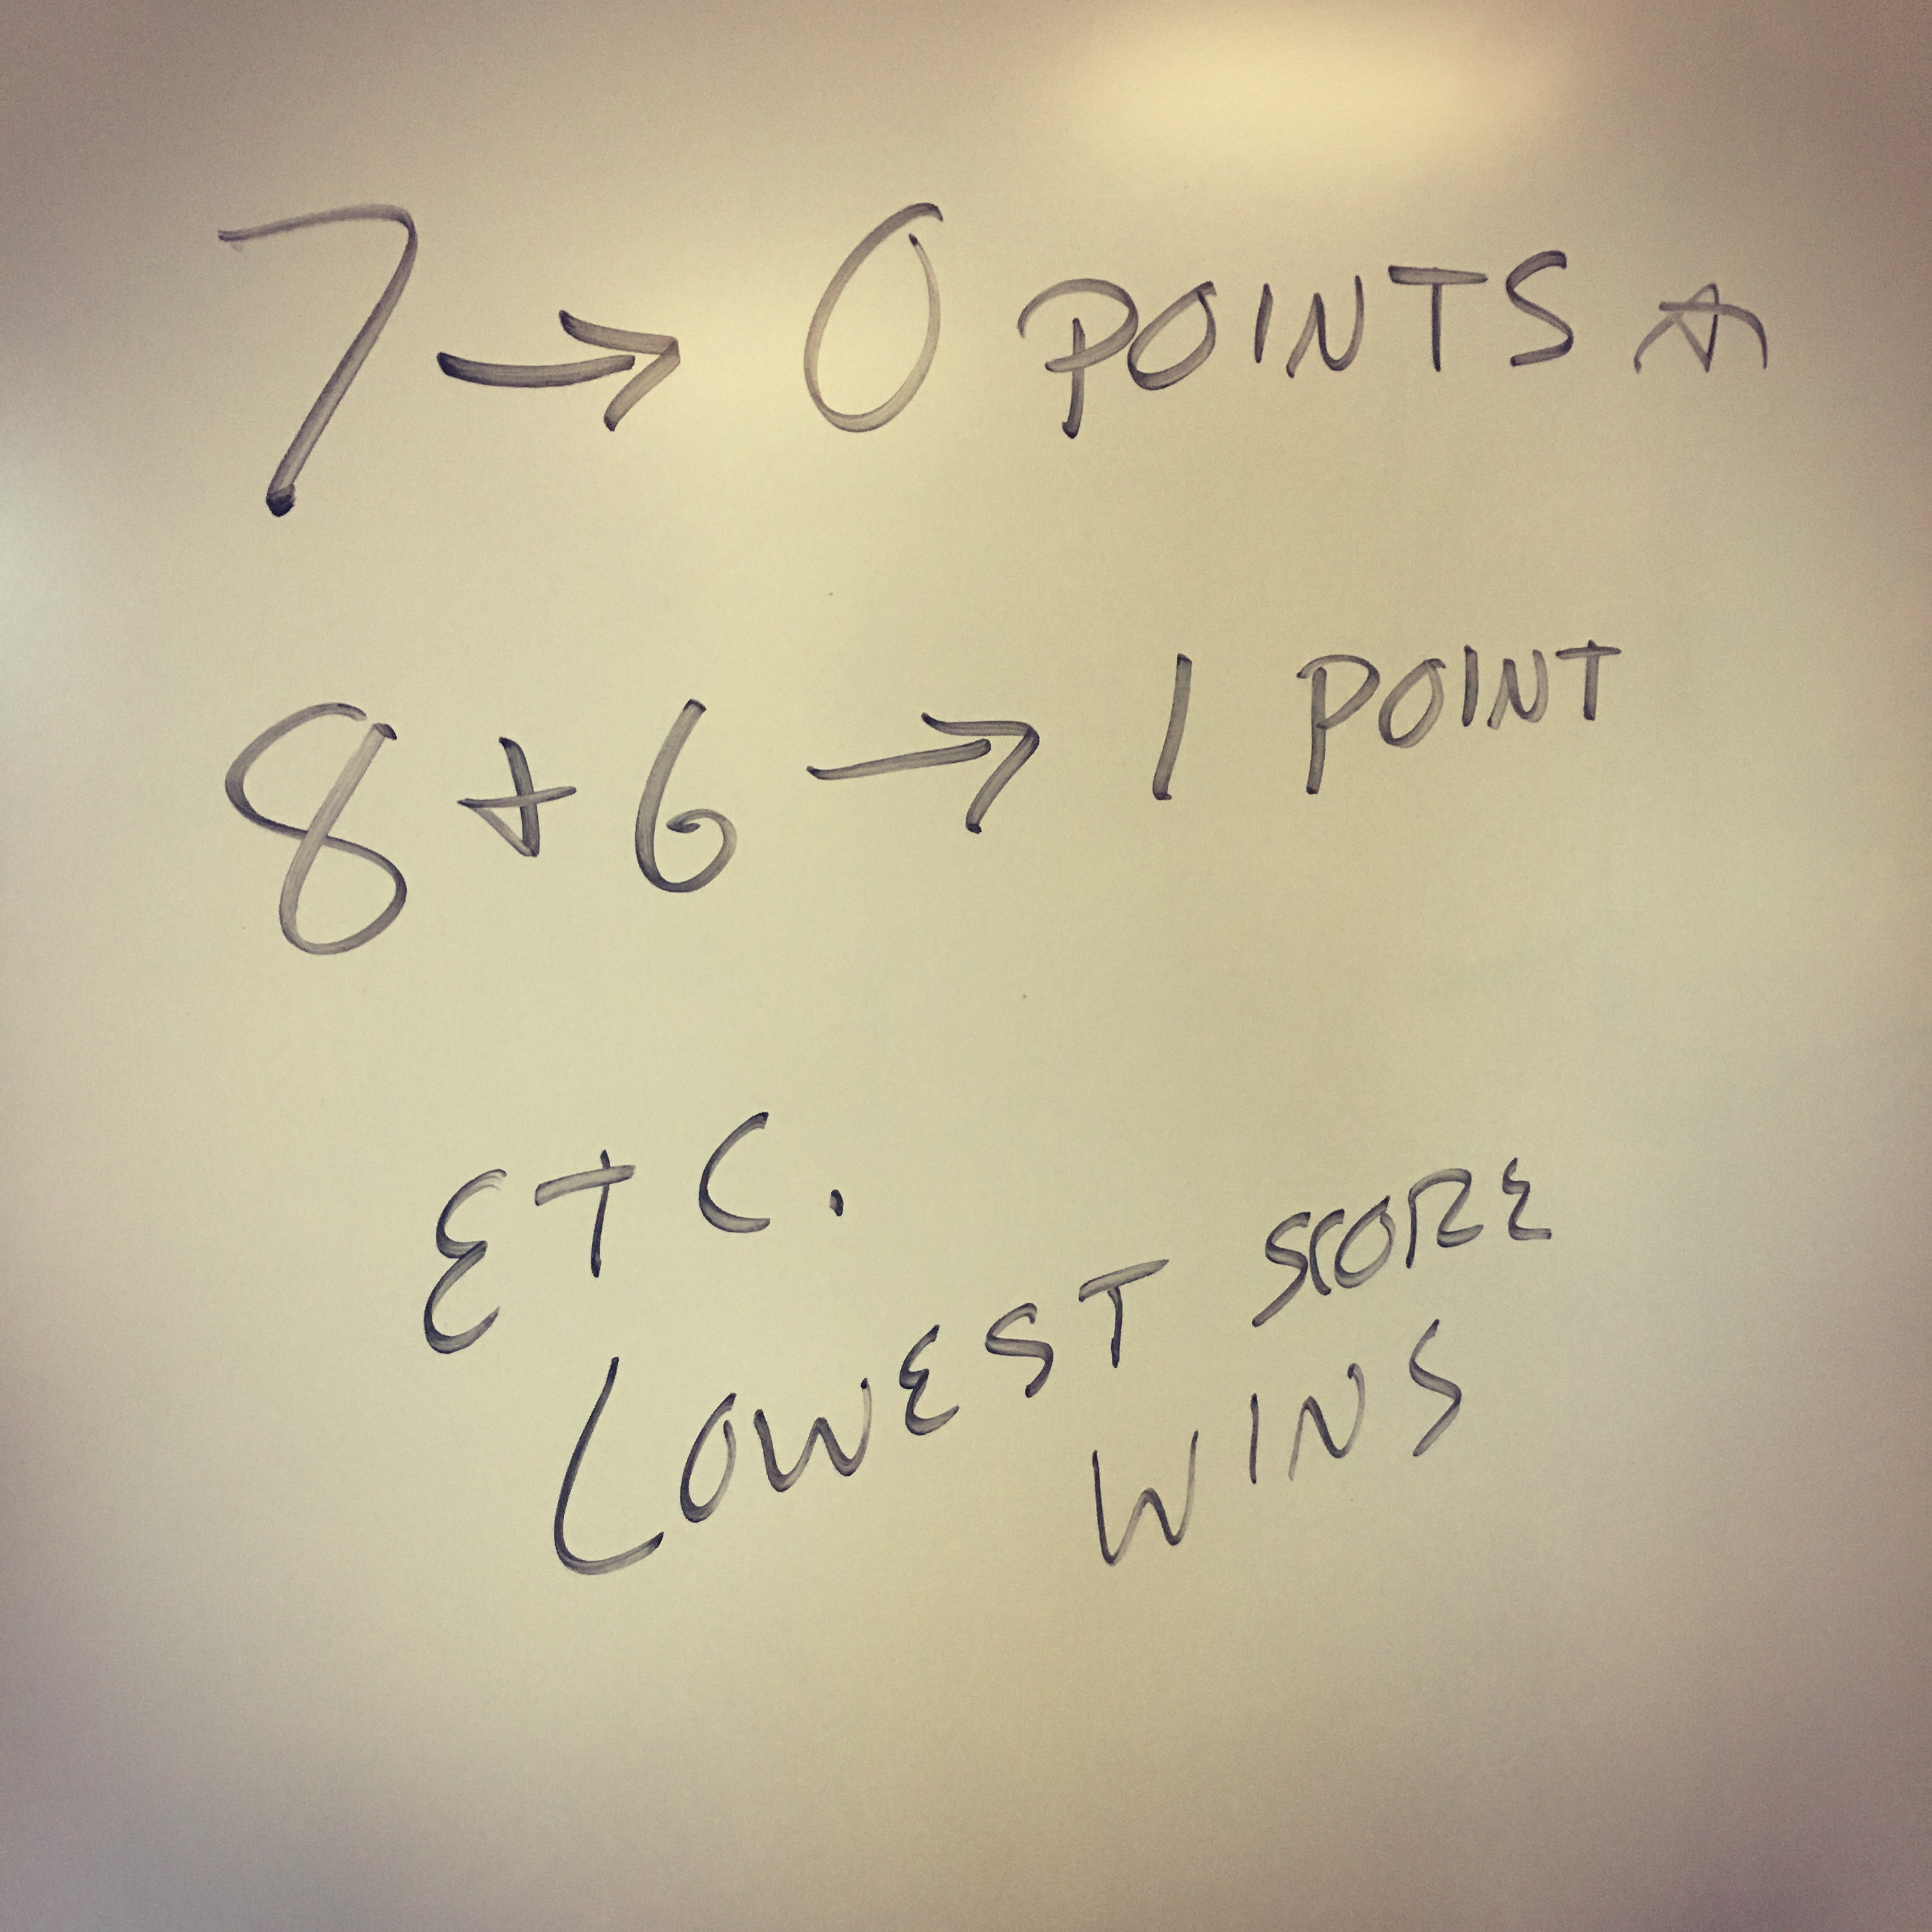 7 → 0 POINTS ☆
8 + 6 → 1 POINT
ETC.
LOWEST SCORE
WINS